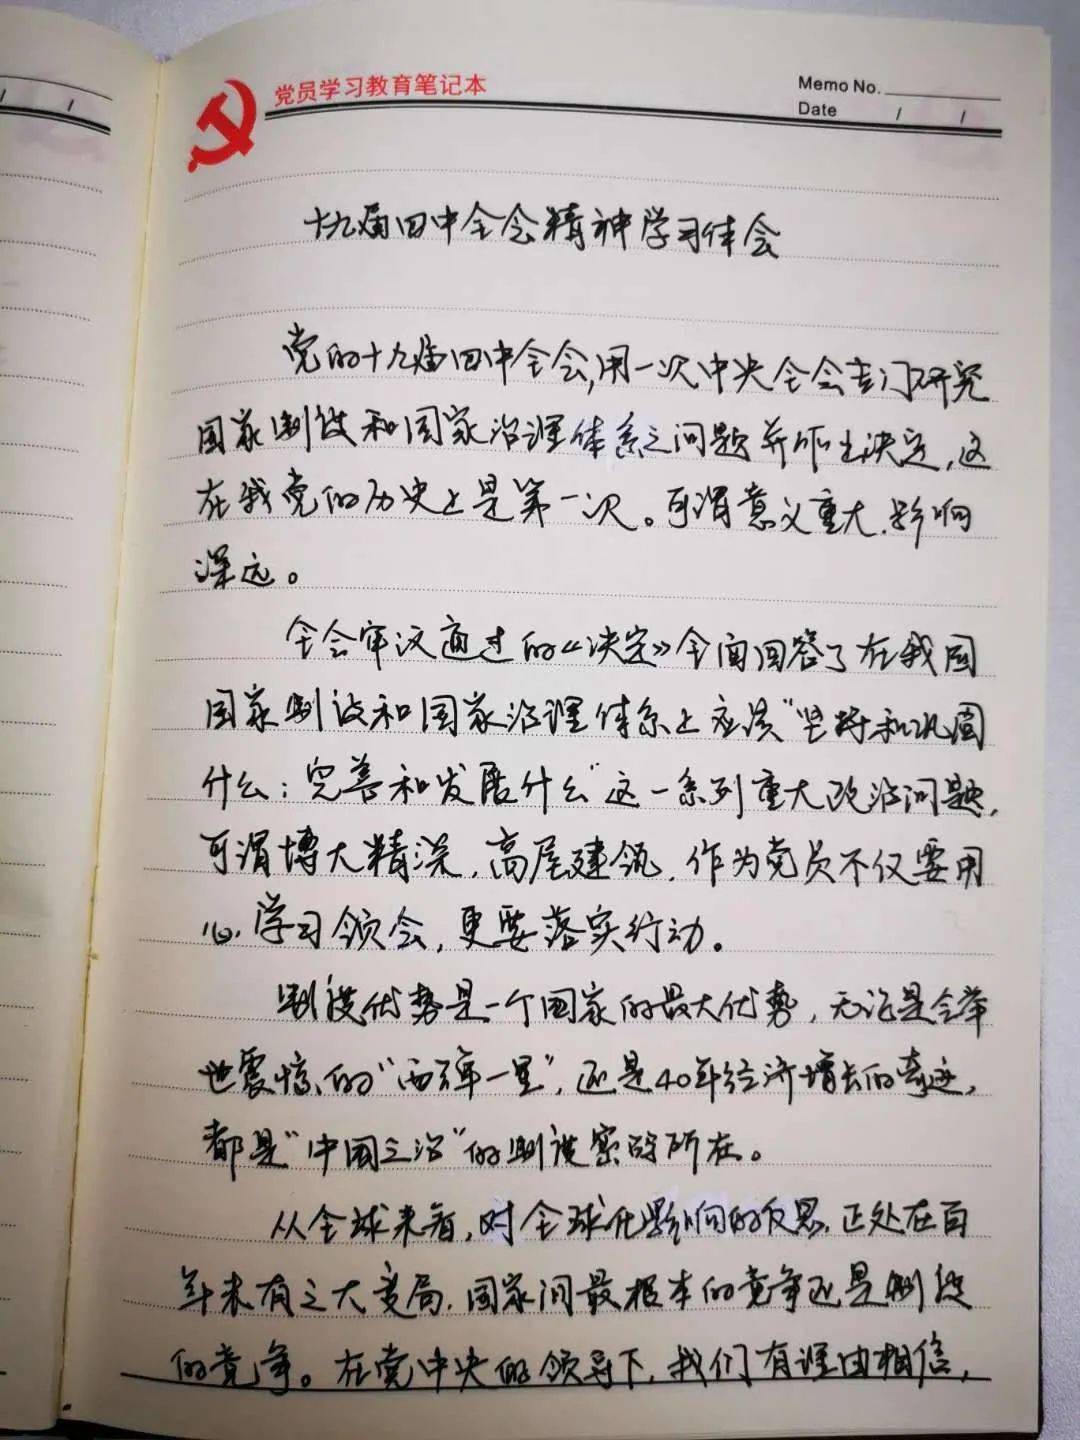 党员学习教育笔记本
Memo No.
Date / /
/ /
十九届四中全会精神学习体会
党的十九届四中全会,用一次中央全会专门研究
国家制度和国家治理体系之问题并作出决定,这
在我党的历史上是第一次。可谓意义重大.影响
深远。
全会审议通过的《决定》全面回答了在我国
国家制度和国家治理体系上应该“坚持和巩固
什么;完善和发展什么”这一系列重大政治问题,
可谓博大精深,高屋建瓴,作为党员不仅要用
心学习领会,更要落实行动。
制度优势是一个国家的最大优势,无论是令举
世震惊的“两弹一星”,还是40年经济增长的奇迹,
都是“中国之治”的制度密码所在。
从全球来看,对全球化影响的反思.正处在百
年未有之大变局.国家间最根本的竞争还是制度
的竞争。在党中央的领导下,我们有理由相信,